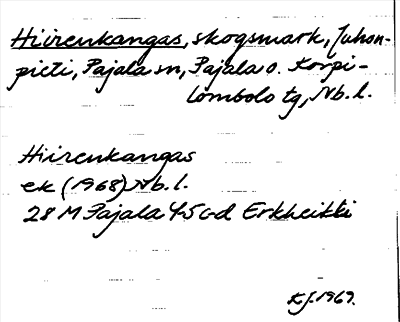 Hiirenkangas, skogsmark, Juhon-
pieti, Pajala sn, Pajala o. Korpi-
lombolo tg, Nb. l.
Hiirenkangas
ek (1968) Nb. l.
28 M Pajala 4-5 c-d Erkheikki
KJ. 1969.